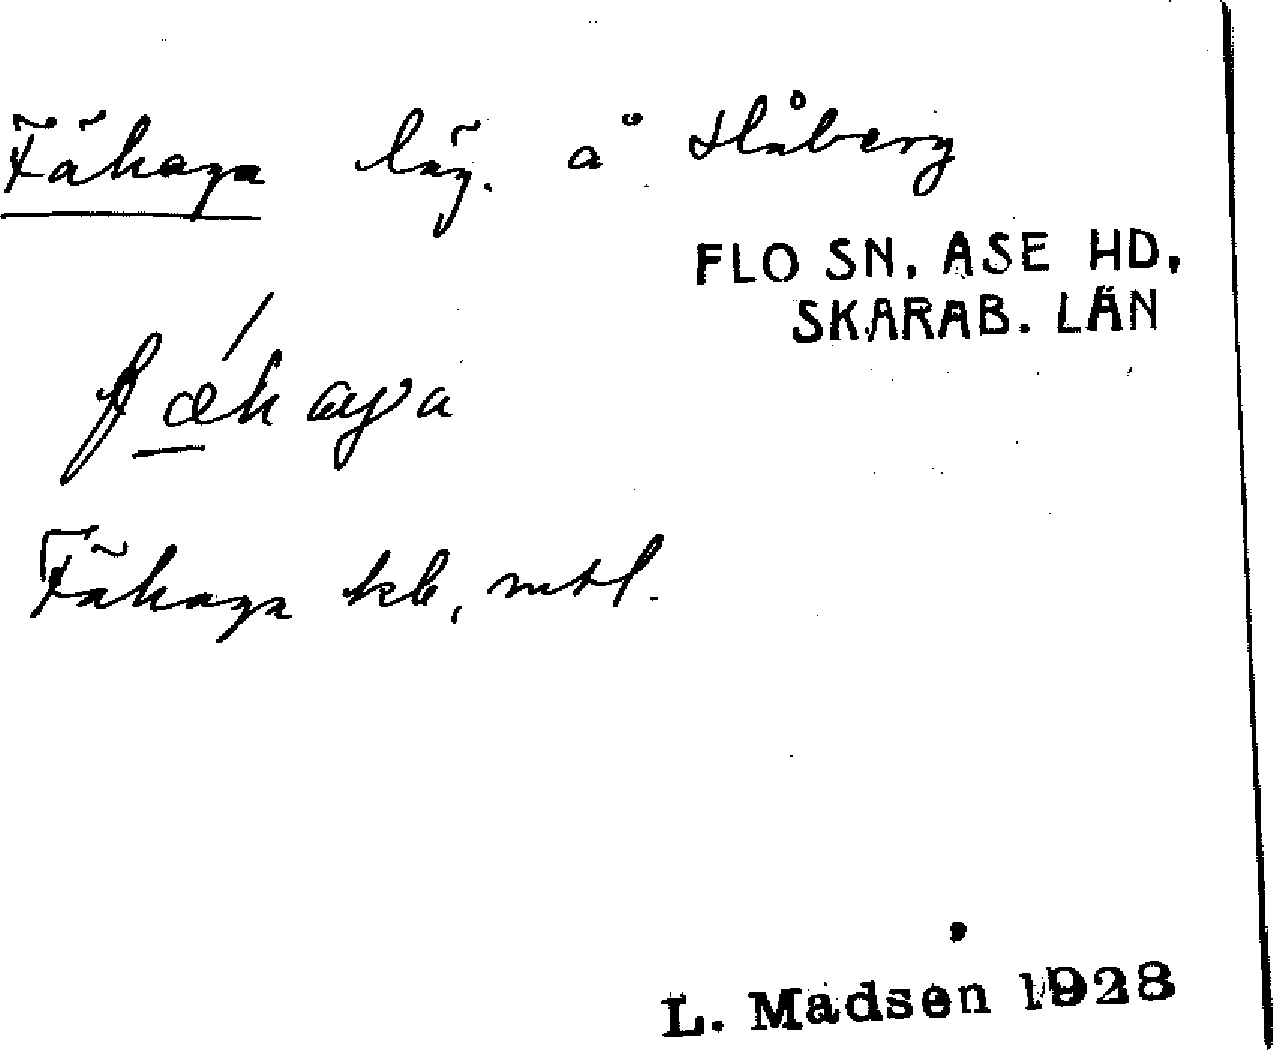 Fähaga läg. å Håberg
FLO SN. ASE HD,
SKARAB. LÄN
fæhaga
Fähaga kb, mtl.
L. Madsen 1928